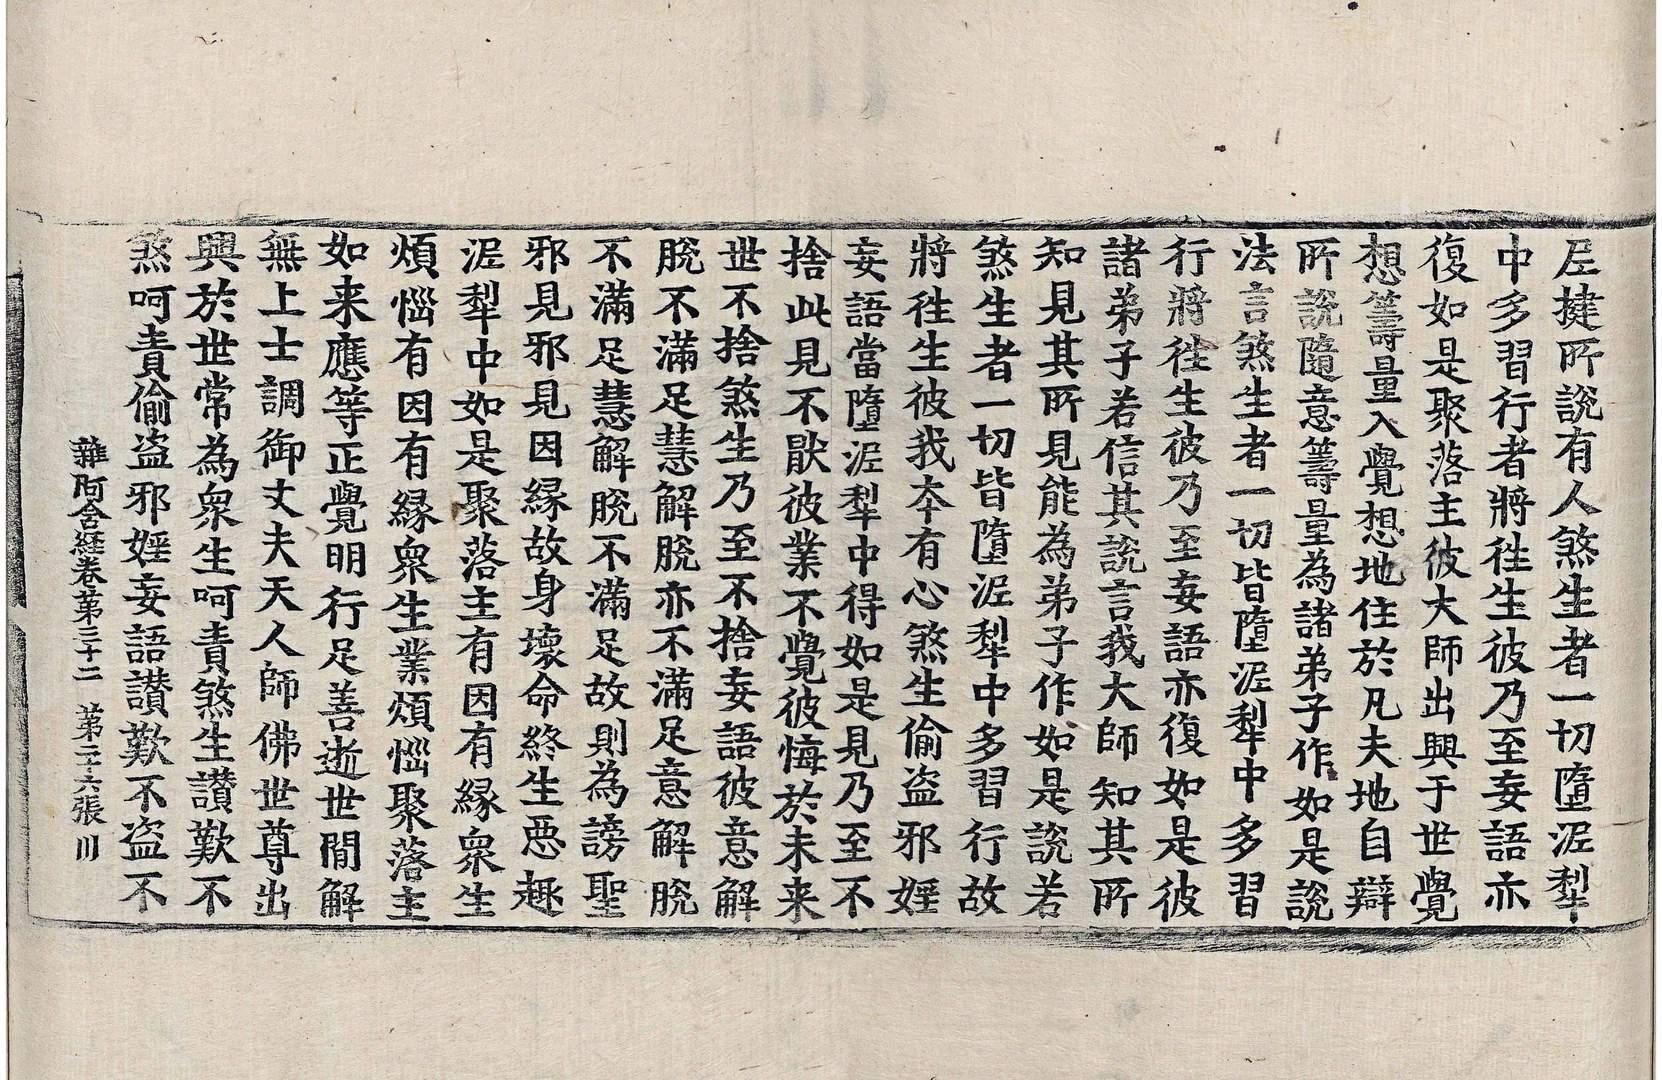 尼揵所說有人煞生者一切墮泥犁
中多習行者將往生彼乃至妄語亦
復如是聚落主彼大師出興于世覺
想籌量入覺想地住於凡夫地自辯
所說隨意籌量為諸弟子作如是說
法言煞生者一切皆墮泥犁中多習
行將往生彼乃至妄語亦復如是彼
諸弟子若信其說言我大師知其所
知見其所見能為弟子作如是說若
煞生者一切皆墮泥犁中多習行故
將往生彼我本有心煞生偷盜邪婬
妄語當墮泥犁中得如是見乃至不
捨此見不猒彼業不覺彼悔於未来
世不捨煞生乃至不捨妄語彼意解
脫不滿足慧解脫亦不滿足意解脫
不滿足慧解脫不滿足故則為謗聖
邪見邪見因緣故身壞命終生惡趣
泥犁中如是聚落主有因有緣衆生
煩惱有因有緣衆生業煩惱聚落主
如来應等正覺明行足善逝世間解
無上士調御丈夫天人師佛世尊出
興於世常為衆生呵責煞生讃歎不
煞呵責偷盜邪婬妄語讃歎不盜不
雜阿含経卷第三十二 第二十六張 川